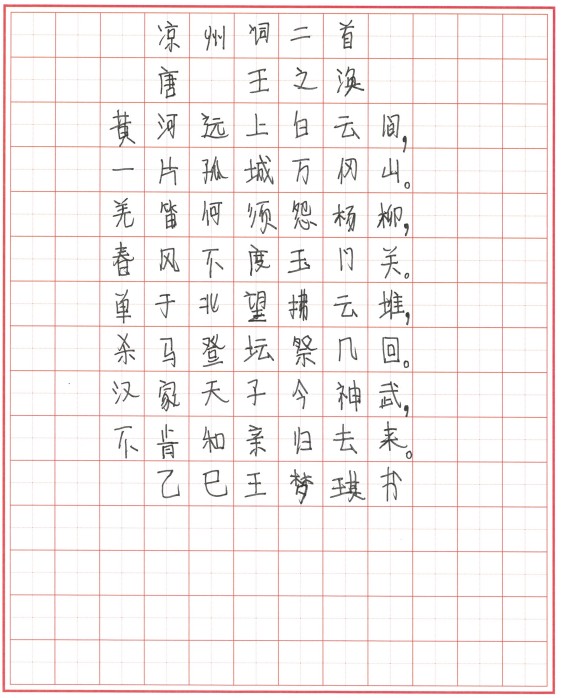 凉州词二首
唐 王之涣
黄河远上白云间，
一片孤城万仞山。
羌笛何须怨杨柳，
春风不度玉门关。
单于北望拂云堆，
杀马登坛祭几回。
汉家天子今神武，
不肯和亲归去来。
乙巳王梦琪书